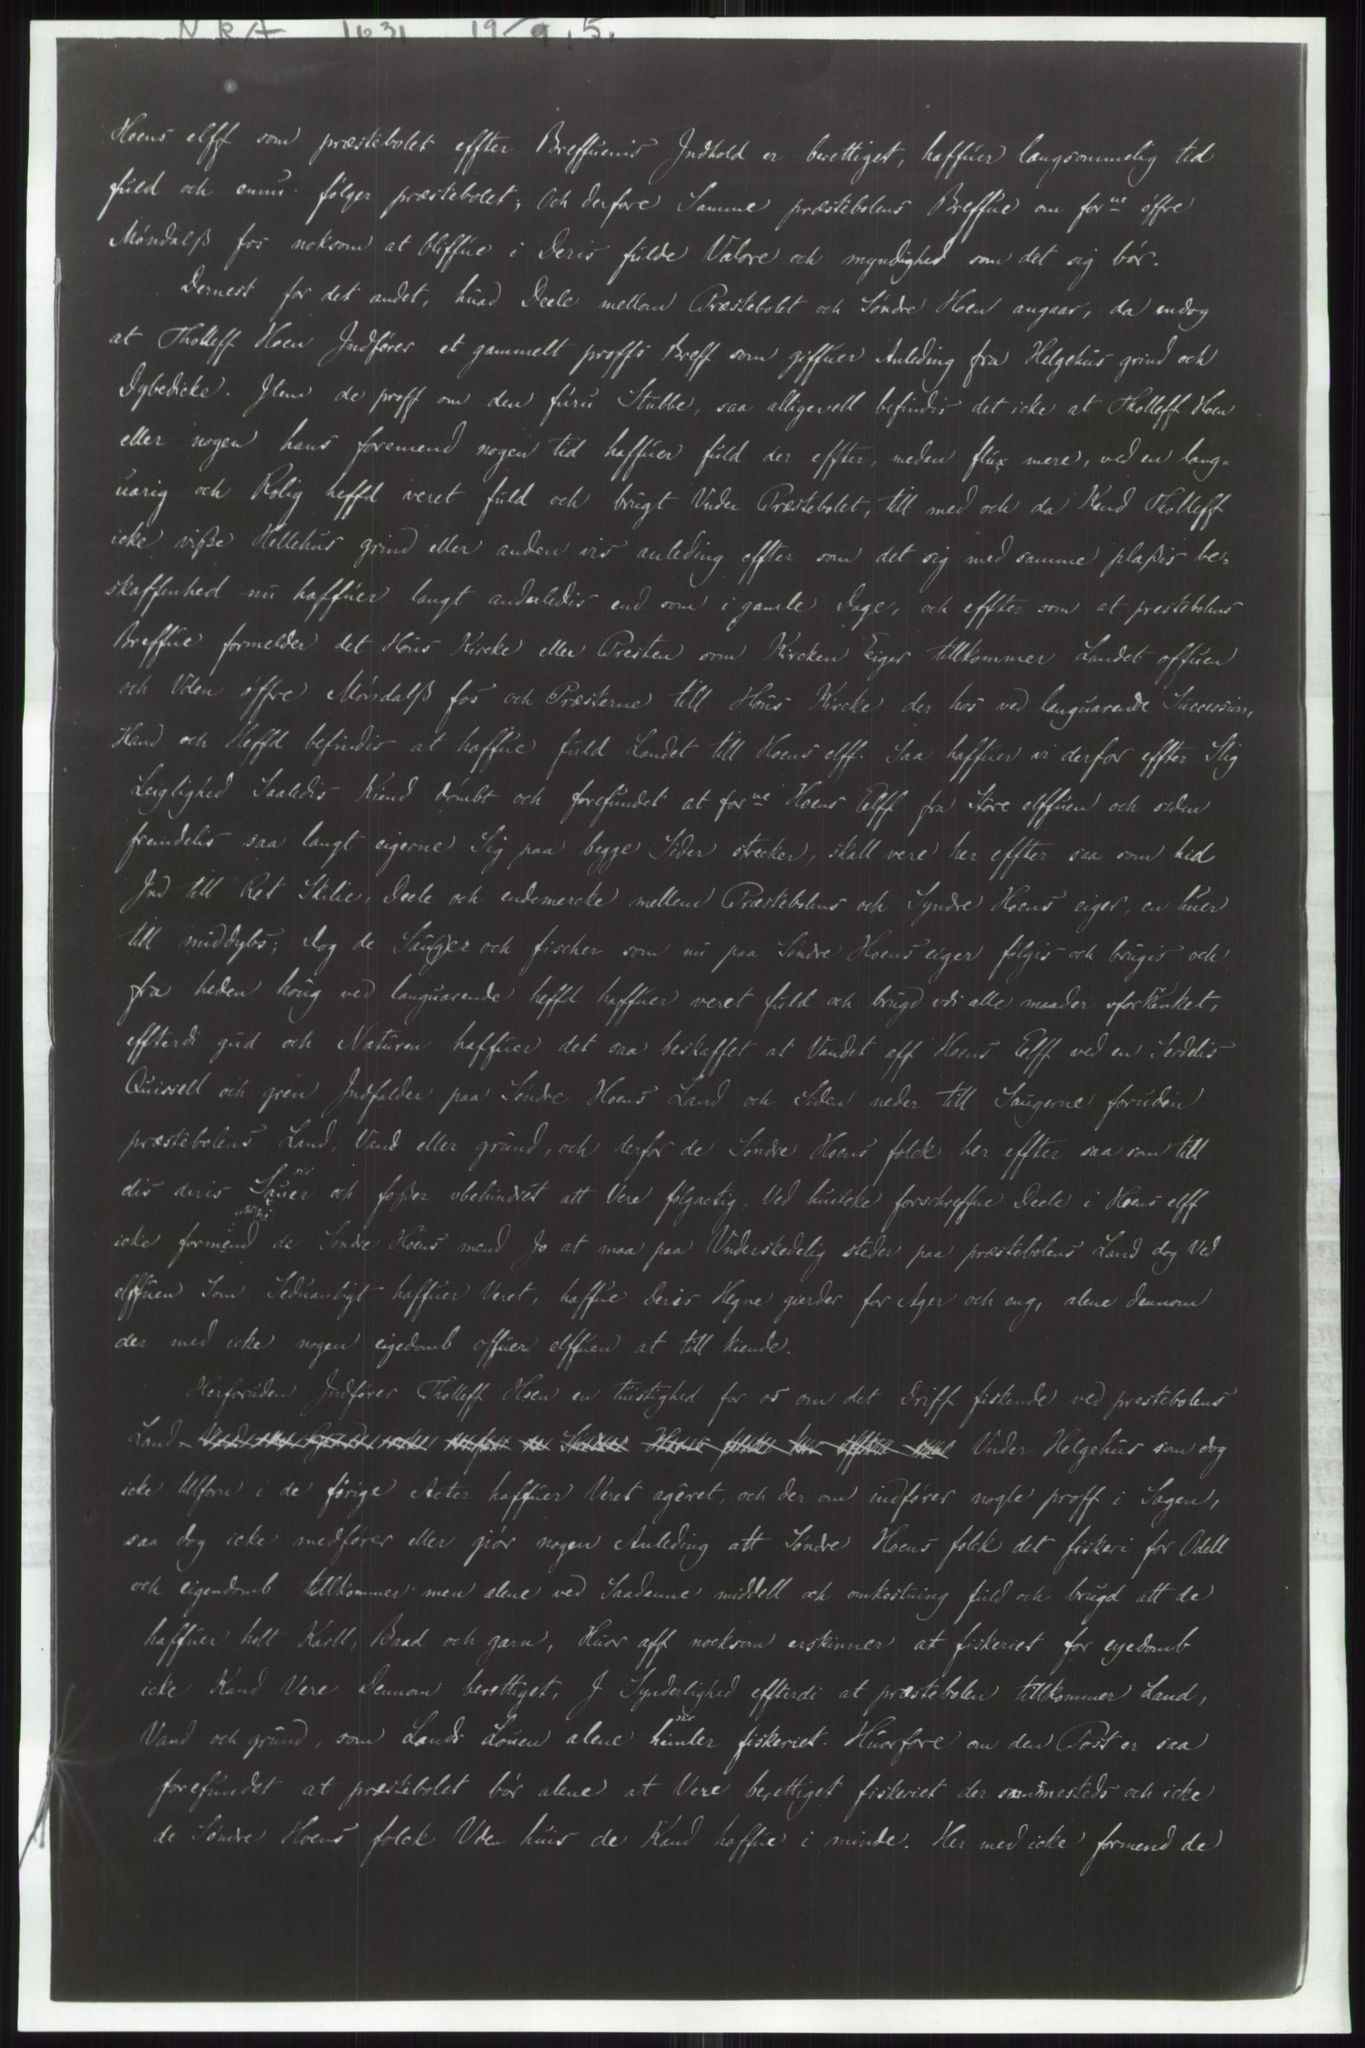 N R A 1631 19/9, 5.
Hoens elff som præstebolet effter Breffuenis Jndhold er berettiget, haffuer langsommelig tid
fuld och ennu følger præstebolet; Och derfore Samme præstebolens Breffue om forne øffre
Møndalß fos noksom at bliffue i Deris fulde Valore och myndighed som det sig bør.
Dernest for det andet, huad Deele mellom Præstebolet och Søndre Hoen angaar, da endog
at Tholleff Hoen Jndfører et gammelt proffs Breff som giffuer Anleding fra Helgehus grind och
Dybedicke. Jtem de proff om den furu Stubbe, saa alligevell befindis det icke at Tholleff Hoen
eller nogen hans foremend nogen tid haffuer fuld der effter, meden flux mere, ved en lang-
uarig och Rolig heffd veret fuld och brugt Vnder Præstebolet, till med och da Kand Tholleff
icke viße Hellehus grind eller anden vis anleding effter som det sig med samme plaßis be-
skaffenhed nu haffuer langt anderledis end som i gamle Dage, och effter som at prestebolens
Breffue formelder det Hous Kircke eller Presten som Kircken Eiger tillkommer Landet offuen
och Vden øffre Møndalß fos och Præsterne till Hous Kircke der hos ved languarende Succession,
Hand och Heffd befindis at haffue fuld Landet till Hoens elff. Saa haffuer vi derfor effter Slig
Leiglighed Saaledis Kiend dømbt och forefundet at forne Hoens Elff fra Store elffuen och siden
fremdelis saa langt eigerne Sig paa begge Sider strecker, skall vere her effter saa som hid
Jnd till Ret Skilie, Deele och endemercke mellem Præstebolens och Syndre Hoens eiger, en huer
till middybs; dog de Sauger och fischer som nu paa Søndre Hoens eiger følgis och brugis och
fra heden houg ved languarende heffd haffuer veret fuld och brugd vdi alle maader vforkrencket,
effterdi gud och Naturen haffuer det saa beskaffet at Vandet aff Hoens Elff ved en Serdelis
Quissell och gren Jndfalder paa Søndre Hoens Land och Siden neder till Saugerne foruden
præstebolens Land, Vand eller grund, och derfor de Søndre Hoens folck her effter saa som till
dis deris Sauer sic och foßer vbehindret att Vere følgactig, Ved huilcke forschreffne Deele i Hoens elff
icke formend de Søndre Hoens mend Jo at maa paa Vnderskedelig steder paa præstebolens Land dog Ved
elffuen Som Seduanligt haffuer Veret, haffue deris Hegne gierder for Ager och eng, alene dennom
der med icke nogen eigedomb offuer elffuen at till kiende.
Herforuden Jndfører Tholleff Hoen en tuistighed for os om det Driff fiskende ved prestebolens
Land Vnder Helgehus som dog
icke tilforn i de førige Acter haffuer Veret ageret, och der om indfører nogle proff i Sagen,
saa dog icke medfører eller giør nogen Anleding att Søndre Hoens folck det fiskeri for Odell
och eigendomb tillkommer men alene ved Saadanne middell och omkostning fuld och brugd att de
haffuer holt Karll, Baad och garn, Huor aff nocksom erskinner at fiskeriet for egedomb
icke Kand Vere Dennom berettiget, J Synderlighed effterdi at præstebolen tillkommer Land,
Vand och grund, som Lands Louen alene himler sic fiskeriet. Huorfore om den Post er saa
forefundet at præstebolet bør alene at Vere berettiget fiskeriet der sammesteds och icke
de Søndre Hoens folck Vten huis de Kand haffue i minde. Her med icke formend de